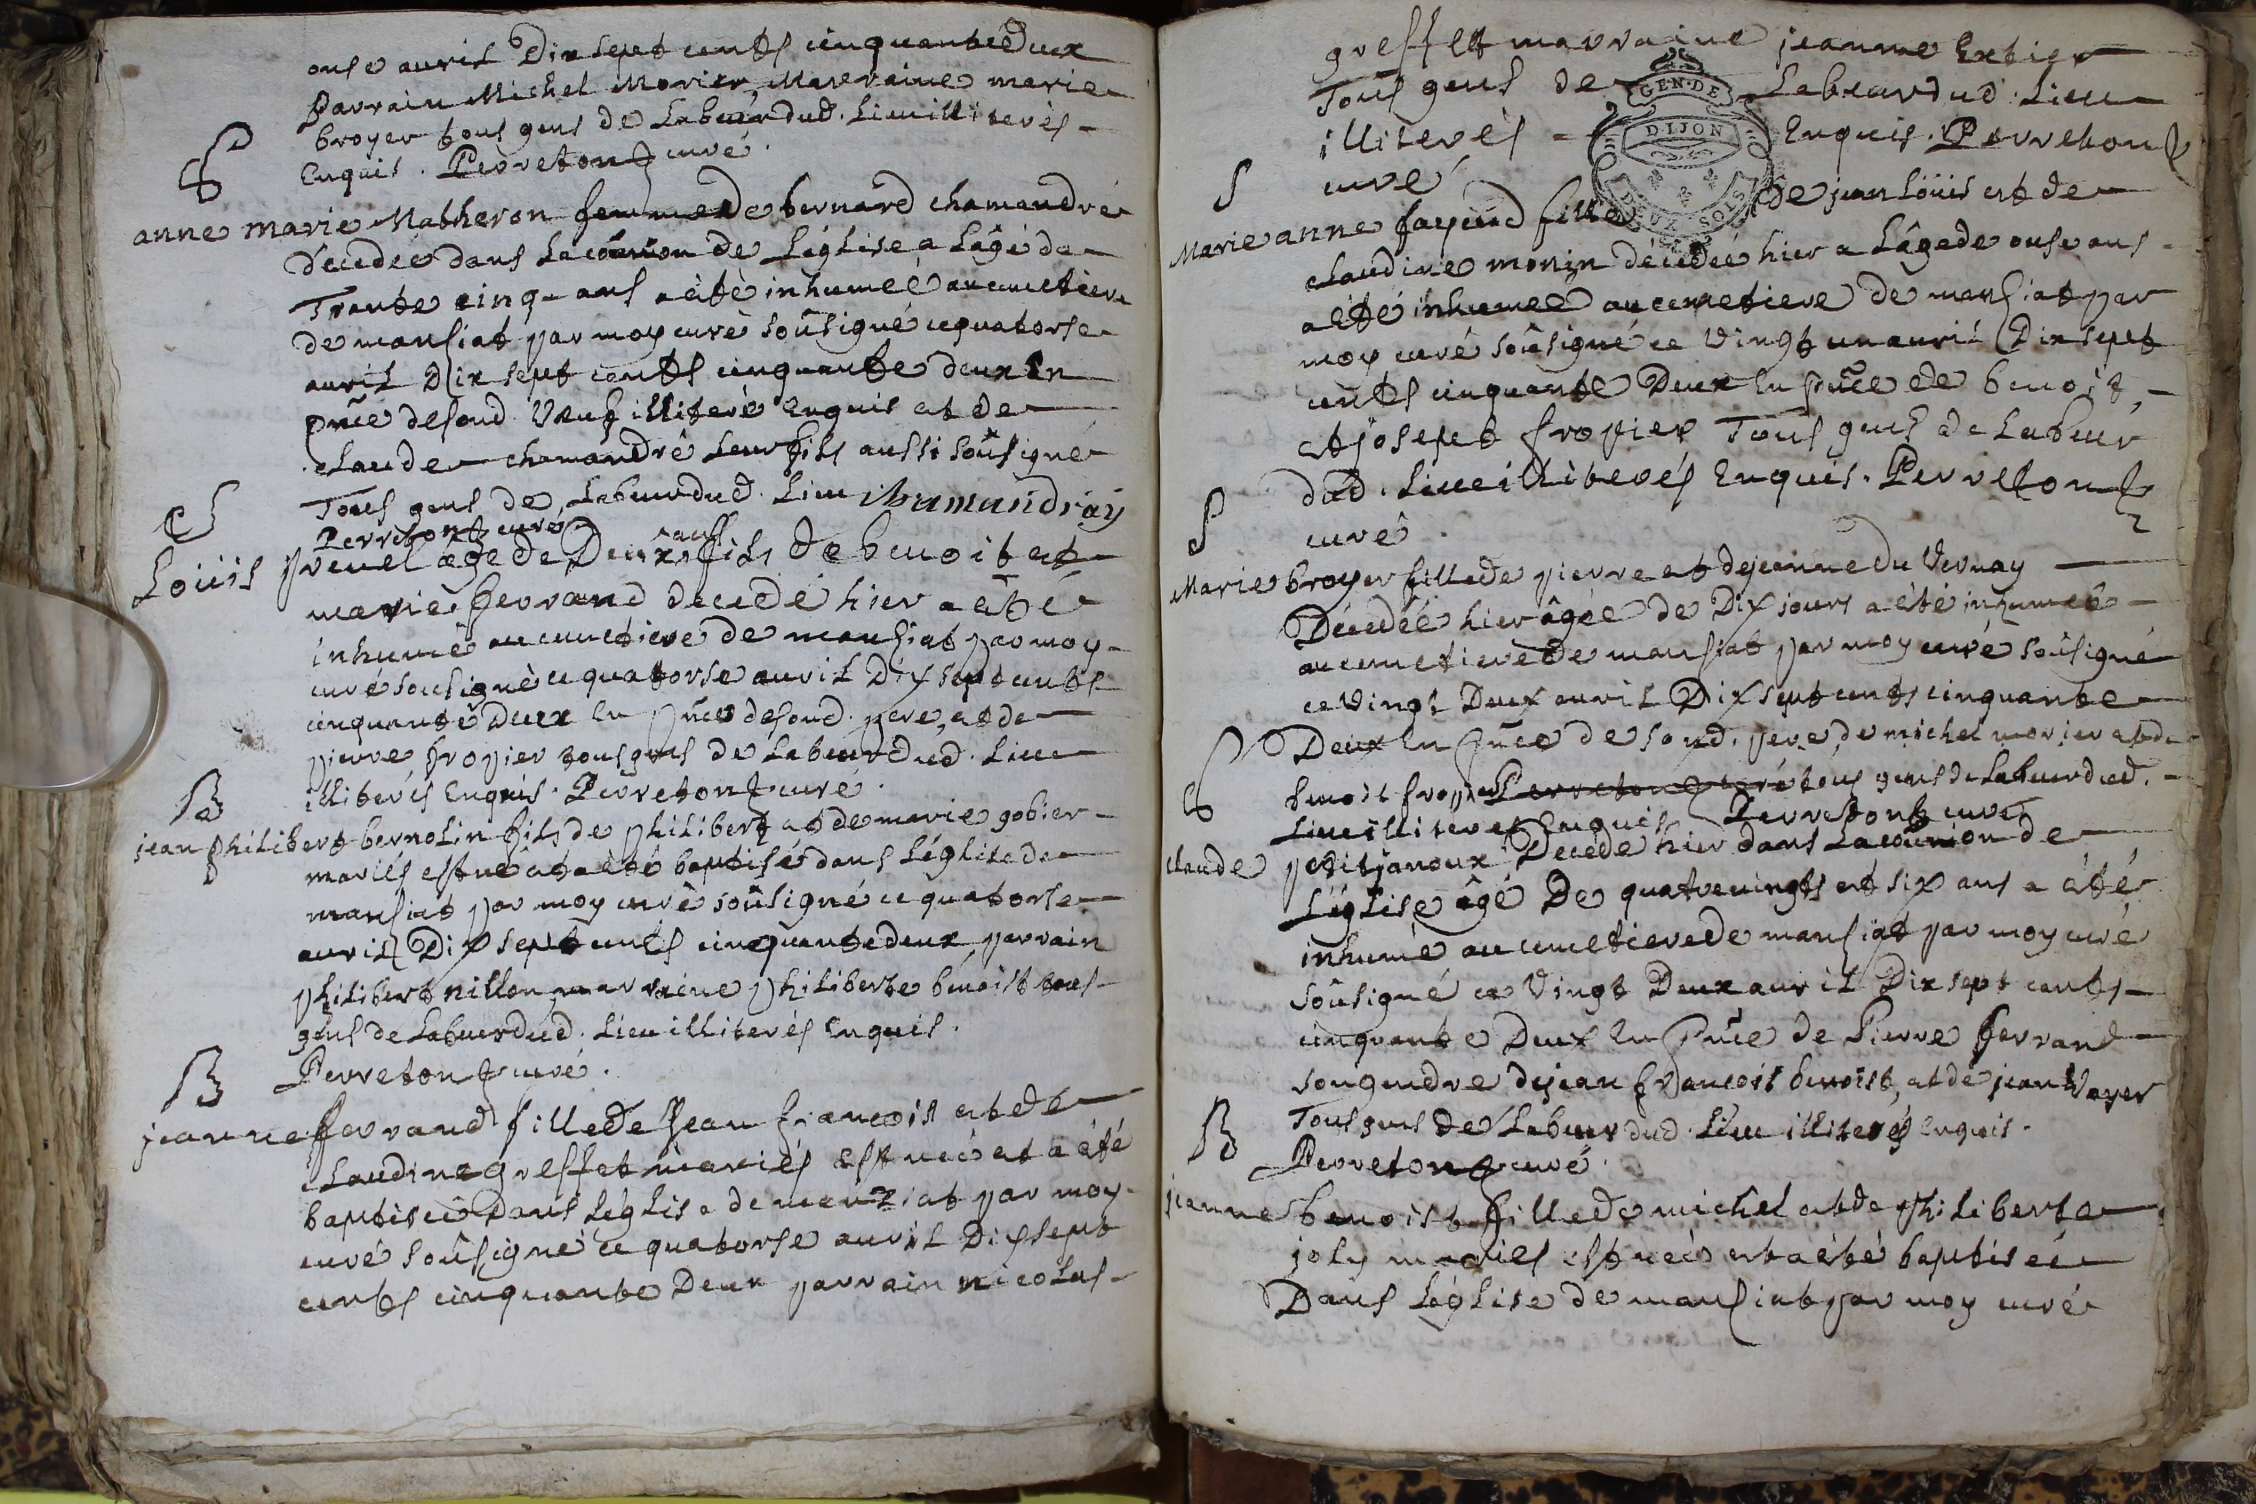 onse avril Dix sept cents cinquante Deux
Parrain Michel Morier, Marraine marie
broyer tous gens de Labeur dud. Lieu illiterés
Enquis. Perreton curé.
S
anne marie Matheron femme de bernard chamandré
décedée dans La coũnion de Léglise a Lâgé de
Trente cinq ans a été inhumeé au cimetiere
de mansiat par moy curé soûsigné ce quatorse
avril Dix sept cents cinquante deux En
pñce de sond. Veuf illiteré Enquis et de
claude chamandré Leur fils aussi soûsigné
Tous gens de Labeur dud. Lieu Chamandray
Perreton curé.
S
Loüis preuel âgé de Deux ans fils de benoit et
marie ferrand decedé hier a été
inhumé au cimetiere de mansiat par moy
curé sousigné ce quatorse avril Dix sept cents
cinquante Deux En pñce de sond. pere, et de
pierre fropier tous gens de Labeur dud. Lieu
illiterés Enquis. Perreton curé.
B
jean philibert bernolin fils de philibert et de marie gobier
mariés est né et a été baptisé dans Léglise de
mansiat par moy curé soûsigné ce quatorse
avril Dix sept cents cinquante deux, parrain
philibert nillon marraine philiberte benoist tous
gens de Labeur dud. Lieu illiterés Enquis.
Perreton curé.
B
jeanne ferrand fille de Jean francois et de
claudine greffet mariés est neé et a été
baptiseé Dans Léglise de manziat par moy
curé soûsigné ce quatorse avril Dix sept
cents cinquante Deux parrain nicolas
greffet marraine jeanne Extier
Tous gens de Labeur dud. Lieu
illiterés Enquis. Perreton
curé
GEN. DE
DIJON
DEUX SOLS
S
Marie anne fayend fille de jean Loüis et de
claudine monin décedeé hier a Lâge de onse ans
a été inhumeé au cimetiere de mansiat par
moy curé soûsigné ce Vingt un avril Dix sept
cents cinquante Deux En pñce de benoit,
et josept fropier Tous gens de Labeur
dud. Lieu illiterés Enquis. Perreton
curé.
S
Marie broyer fille de pierre et de jeanne du Vernay
Décedéé hier âgée de Dix jours a été inhumeé
au cimetiere de mansiat par moy curé soûsigné
ce Vingt Deux avril Dix sept cents cinquante
Deux En pñce de sond. pere, de michel morier et de
benoit fropier Perreton curé tous gens de Labeur dud.
Lieu illiterés Enquis Perreton curé
S
claude petitjanoux Decedé hier dans La coũnion de
Léglise âgé De quatrevingts et six ans a été
inhumé au cimetiere de mansiat par moy curé
soûsigné ce Vingt Deux avril Dix sept cents
cinquante Deux En Pñce de Pierre ferrand
son gendre de jean francois benoist, et de jean Vayer
Tous gens de Labeur dud. Lieu illiterés Enquis.
Perreton curé.
B
jeanne benoist fille de michel et de philiberte
joly mariés est neé et a été baptiseé
Dans Léglise de mansiat par moy curé